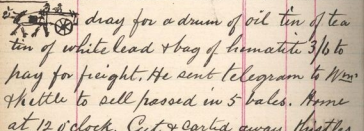 dray for a drum of oil tin of tea
tin of white lead & bag of hematite 3/6 to
pay for freight. He sent telegram to Wms
& Kettle to sell passed in 5 bales. Home
at 12 o'clock. Cut & carted away thistles